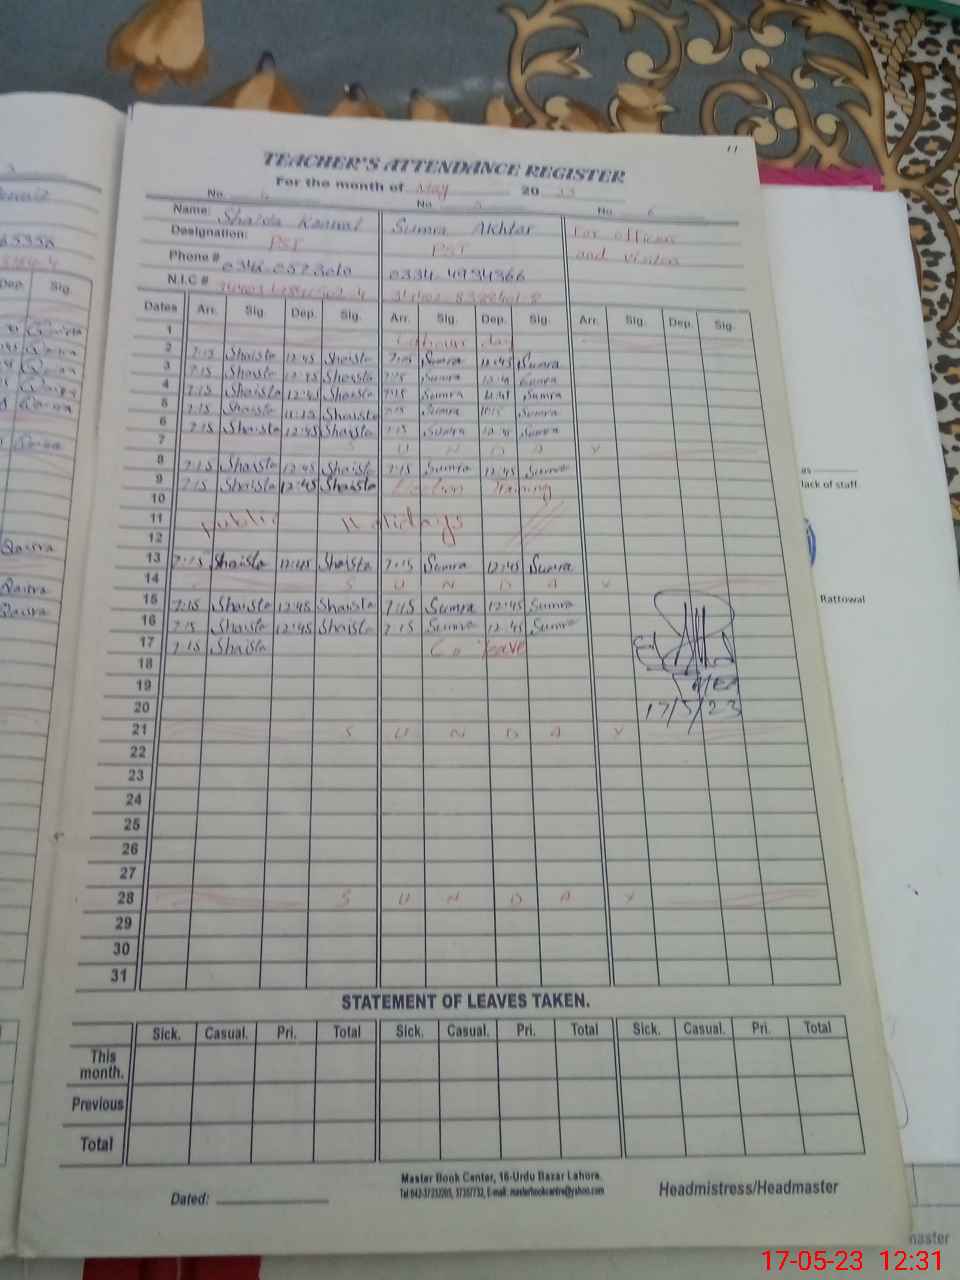 11
TEACHER'S ATTENDANCE REGISTER
For the month of May 20 23
No. 4 No. 5 No. 6
Name: Shaista Kanwal Sumra Akhtar For officers
Designation: PST PST and visitors
Phone # 0334.4934366
N.I.C #
Dates Arr. Sig. Dep. Sig. Arr. Sig. Dep. Sig. Arr. Sig. Dep. Sig.
1 Labour day
2 7:15 Shaista 12:45 Shaista 7:15 Sumra 12:45 Sumra
3 7:15 Shaista 12:45 Shaista 7:15 Sumra 12:45 Sumra
4 7:15 Shaista 12:45 Shaista 7:15 Sumra 12:45 Sumra
5 7:15 Shaista Shaista 7:15 Sumra Sumra
6 7:15 Shaista 12:45 Shaista 7:15 Sumra 12:45 Sumra
7 S U N D A Y
8 7:15 Shaista 12:45 Shaista 7:15 Sumra 12:45 Sumra
9 7:15 Shaista 12:45 Shaista Training
10
11 Public Holidays
12
13 7:15 Shaista 12:45 Shaista 7:15 Sumra 12:45 Sumra
14 S U N D A Y
15 7:15 Shaista 12:45 Shaista 7:15 Sumra 12:45 Sumra
16 7:15 Shaista 12:45 Shaista 7:15 Sumra 12:45 Sumra
17 7:15 Shaista leave
18
19
20 17/5/23
21 S U N D A Y
22
23
24
25
26
27
28 S U N D A Y
29
30
31
STATEMENT OF LEAVES TAKEN.
Sick. Casual. Pri. Total Sick. Casual. Pri. Total Sick. Casual. Pri. Total
This month.
Previous
Total
Master Book Center, 16-Urdu Bazar Lahore.
Dated: Headmistress/Headmaster
Dep. Sig.
lack of staff.
Rattowal
master
17-05-23 12:31